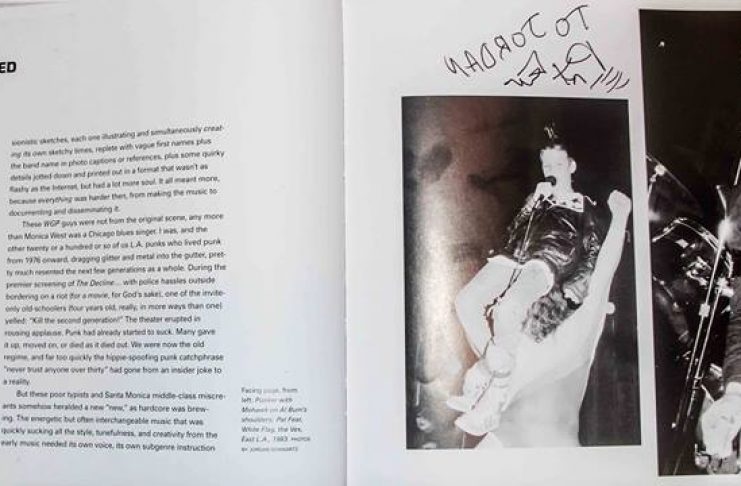 ED
sionistic sketches, each one illustrating and simultaneously creat-
ing its own sketchy times, replete with vague first names plus
the band name in photo captions or references, plus some quirky
details jotted down and printed out in a format that wasn't as
flashy as the Internet, but had a lot more soul. It all meant more,
because everything was harder then, from making the music to
documenting and disseminating it.
These WGP guys were not from the original scene, any more
than Monica West was a Chicago blues singer. I was, and the
other twenty or a hundred or so of us L.A. punks who lived punk
from 1976 onward, dragging glitter and metal into the gutter, pret-
ty much resented the next few generations as a whole. During the
premier screening of The Decline... with police hassles outside
bordering on a riot (for a movie, for God's sake), one of the invite-
only old-schoolers (four years old, really, in more ways than one)
yelled: "Kill the second generation!" The theater erupted in
rousing applause. Punk had already started to suck. Many gave
it up, moved on, or died as it died out. We were now the old
regime, and far too quickly the hippie-spoofing punk catchphrase
"never trust anyone over thirty" had gone from an insider joke to
a reality.
But these poor typists and Santa Monica middle-class miscre-
ants somehow heralded a new "new," as hardcore was brew-
ing. The energetic but often interchangeable music that was
quickly sucking all the style, tunefulness, and creativity from the
early music needed its own voice, its own subgenre instruction
Facing page, from
left: Punker with
Mohawk on Al Bum's
shoulders; Pat Fear,
White Flag, the Vex,
East L.A., 1983. PHOTOS
BY JORDAN SCHWARTZ
TO JORDAN